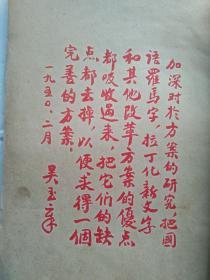 加深对於方案的研究，把國
語羅馬字，拉丁化新文字
和其他改革方案的優点
都吸收過来，把它们的缺
点都去掉，以便求得一個
完善的方案。
一九五〇、二月
吴玉章